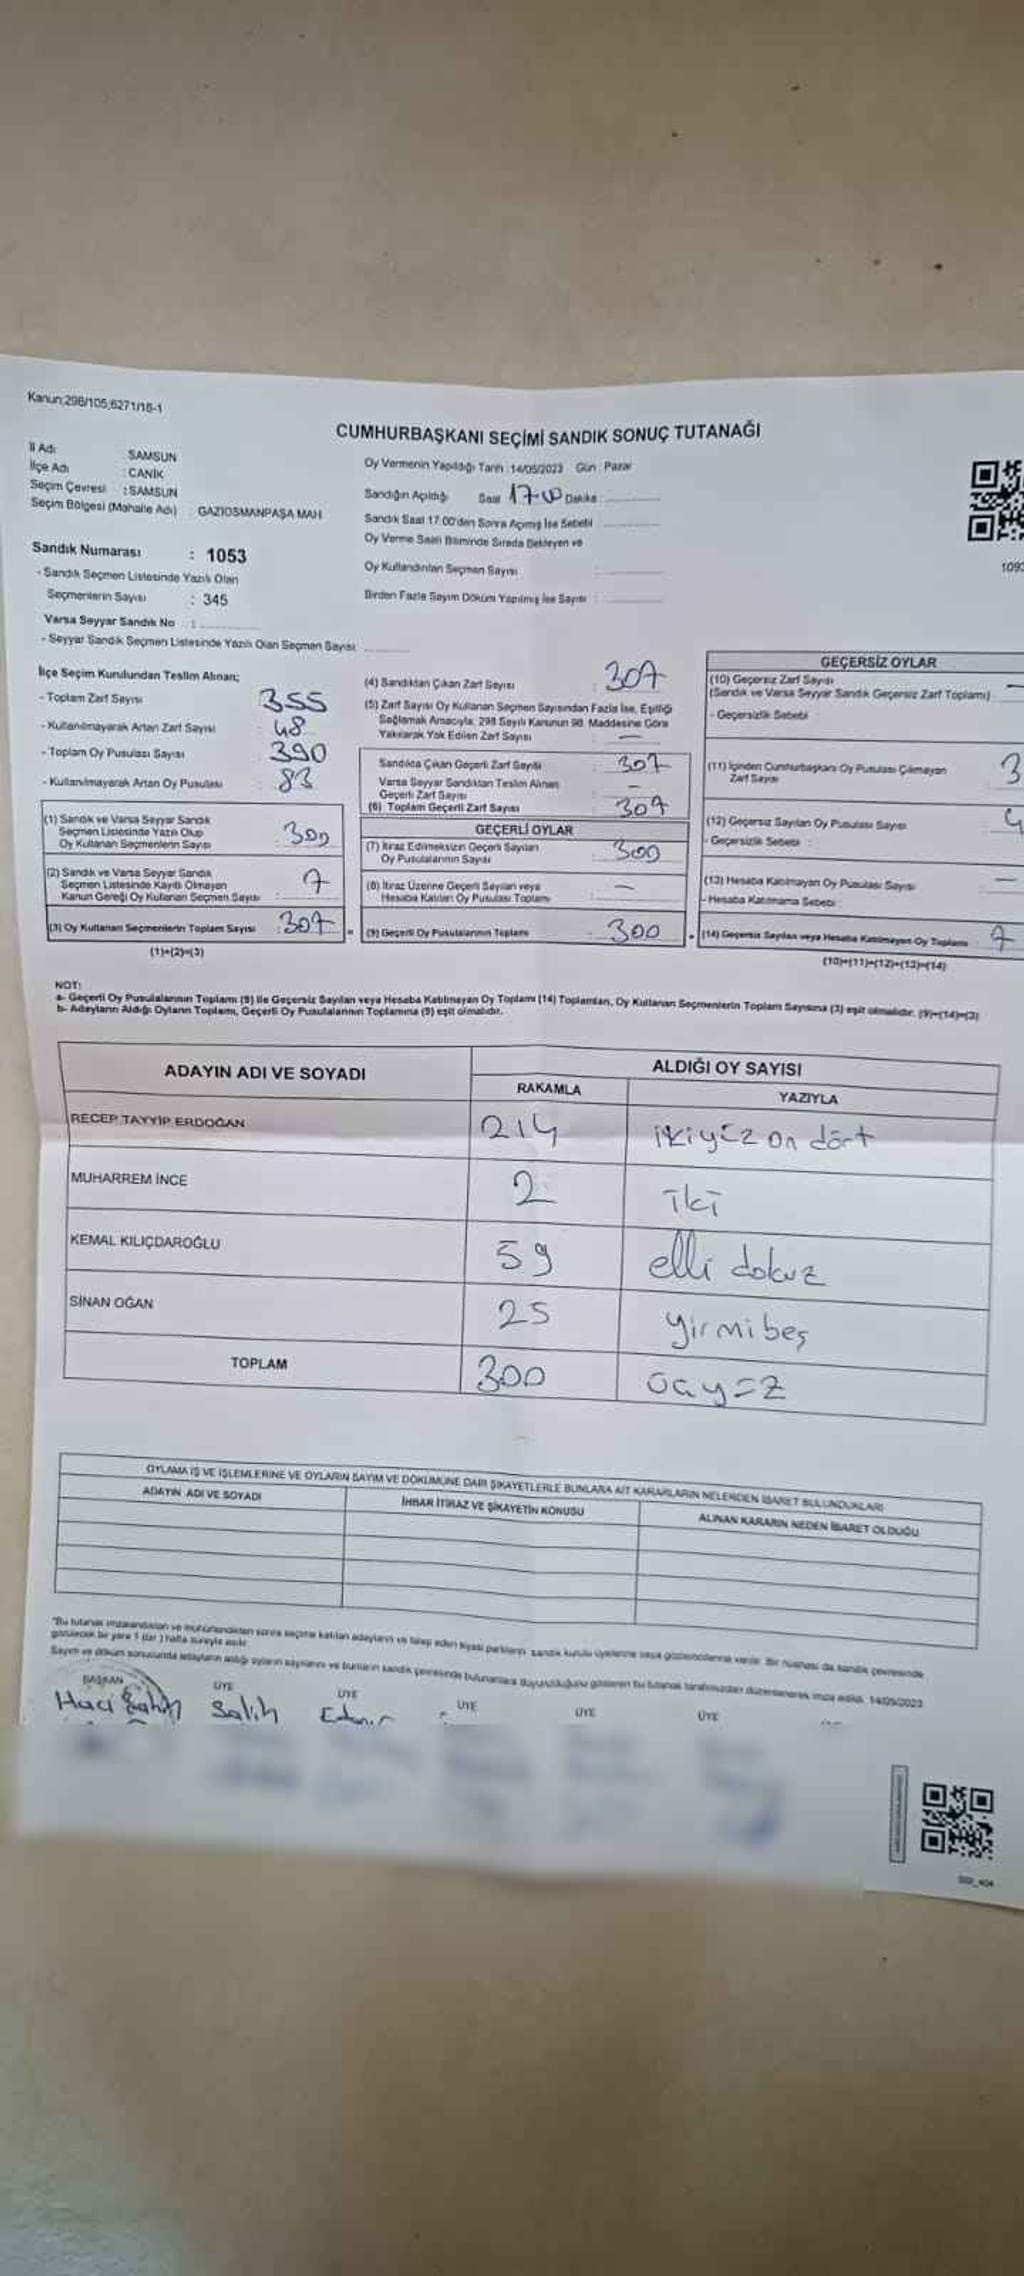 Kanun;298/105;6271/18-1
CUMHURBAŞKANI SEÇİMİ SANDIK SONUÇ TUTANAĞI
İl Adı : SAMSUN
İlçe Adı : CANİK
Seçim Çevresi : SAMSUN
Seçim Bölgesi (Mahalle Adı) : GAZİOSMANPAŞA MAH
Sandık Numarası : 1053
- Sandık Seçmen Listesinde Yazılı Olan
Seçmenlerin Sayısı : 345
Varsa Seyyar Sandık No :
- Seyyar Sandık Seçmen Listesinde Yazılı Olan Seçmen Sayısı:
Oy Vermenin Yapıldığı Tarih :14/05/2023 Gün : Pazar
Sandığın Açıldığı Saat 17:00 Dakika :
Sandık Saat 17.00'den Sonra Açımış İse Sebebi
Oy Verme Saati Bitiminde Sırada Bekleyen ve
Oy Kullandırılan Seçmen Sayısı :
Birden Fazla Sayım Döküm Yapılmış İse Sayısı :
1093
İlçe Seçim Kurulundan Teslim Alınan;
- Toplam Zarf Sayısı : 355
- Kullanılmayarak Artan Zarf Sayısı : 48
- Toplam Oy Pusulası Sayısı : 390
- Kullanılmayarak Artan Oy Pusulası : 83
(1) Sandık ve Varsa Seyyar Sandık
Seçmen Listesinde Yazılı Olup
Oy Kullanan Seçmenlerin Sayısı : 300
(2) Sandık ve Varsa Seyyar Sandık
Seçmen Listesinde Kayıtlı Olmayan
Kanun Gereği Oy Kullanan Seçmen Sayısı : 7
(3) Oy Kullanan Seçmenlerin Toplam Sayısı : 307
(1)+(2)=(3)
(4) Sandıktan Çıkan Zarf Sayısı : 307
(5) Zarf Sayısı Oy Kullanan Seçmen Sayısından Fazla İse, Eşitliği
Sağlamak Amacıyla, 298 Sayılı Kanunun 98. Maddesine Göre
Yakılarak Yok Edilen Zarf Sayısı : —
Sandıkta Çıkan Geçerli Zarf Sayısı : 307
Varsa Seyyar Sandıktan Teslim Alınan
Geçerli Zarf Sayısı : -
(6) Toplam Geçerli Zarf Sayısı : 307
GEÇERLİ OYLAR
(7) İtiraz Edilmeksizin Geçerli Sayılan
Oy Pusulalarının Sayısı : 300
(8) İtiraz Üzerine Geçerli Sayılan veya
Hesaba Katılan Oy Pusulası Toplamı : —
(9) Geçerli Oy Pusulalarının Toplamı : 300
GEÇERSİZ OYLAR
(10) Geçersiz Zarf Sayısı
(Sandık ve Varsa Seyyar Sandık Geçersiz Zarf Toplamı) —
- Geçersizlik Sebebi :
(11) İçinden Cumhurbaşkanı Oy Pusulası Çıkmayan
Zarf Sayısı 3
(12) Geçersiz Sayılan Oy Pusulası Sayısı 4
- Geçersizlik Sebebi :
(13) Hesaba Katılmayan Oy Pusulası Sayısı —
- Hesaba Katılmama Sebebi :
(14) Geçersiz Sayılan veya Hesaba Katılmayan Oy Toplamı 7
(10)+(11)+(12)+(13)=(14)
NOT:
a- Geçerli Oy Pusulalarının Toplamı (9) ile Geçersiz Sayılan veya Hesaba Katılmayan Oy Toplamı (14) Toplamları, Oy Kullanan Seçmenlerin Toplam Sayısına (3) eşit olmalıdır. (9)+(14)=(3)
b- Adayların Aldığı Oyların Toplamı, Geçerli Oy Pusulalarının Toplamına (9) eşit olmalıdır.
ADAYIN ADI VE SOYADI
ALDIĞI OY SAYISI
RAKAMLA YAZIYLA
RECEP TAYYİP ERDOĞAN 214 ikiyüz on dört
MUHARREM İNCE 2 iki
KEMAL KILIÇDAROĞLU 59 elli dokuz
SİNAN OĞAN 25 yirmibeş
TOPLAM 300 üçyüz
OYLAMA İŞ VE İŞLEMLERİNE VE OYLARIN SAYIM VE DÖKÜMÜNE DAİR ŞİKAYETLERLE BUNLARA AİT KARARLARIN NELERDEN İBARET BULUNDUKLARI
ADAYIN ADI VE SOYADI İHBAR İTİRAZ VE ŞİKAYETİN KONUSU ALINAN KARARIN NEDEN İBARET OLDUĞU
*Bu tutanak imzalandıktan ve mühürlendikten sonra seçime katılan adayların ve talep eden siyasi partilerin sandık kurulu üyelerine veya gözlemcilerine verilir. Bir nüshası da sandık çevresinde
görülecek bir yere 1 (bir) hafta süreyle asılır.
Sayım ve döküm sonucunda adayların aldığı oyların sayılarını ve bunların sandık çevresinde bulunanlara duyurulduğunu gösteren bu tutanak tarafımızdan düzenlenerek imza edildi. 14/05/2023
BAŞKAN ÜYE ÜYE ÜYE ÜYE ÜYE
Hacı Şahin Salih